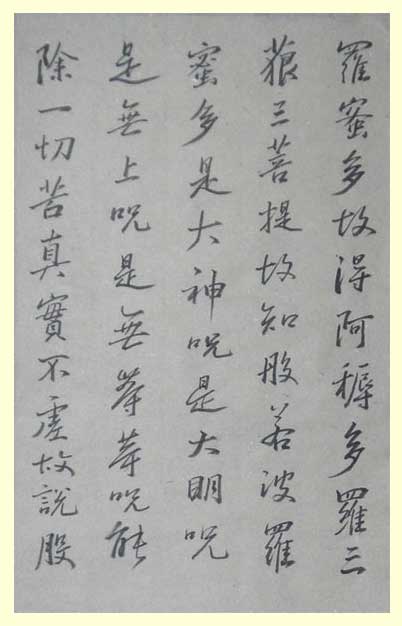 羅蜜多故得阿耨多羅三
藐三菩提故知般若波羅
蜜多是大神咒是大明咒
是無上咒是無等等咒能
除一切苦真實不虛故說般